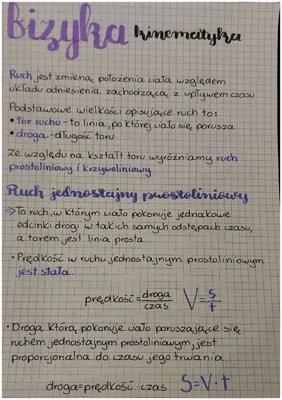 fizyka kinematyka
Ruch jest zmienną położenia ciała względem
układu odniesienia zachodzącą z upływem czasu
Podstawowe wielkości opisujące ruch to:
• tor ruchu - to linia, po której ciało się porusza
• droga - długość toru
Ze względu na kształt toru wyróżniamy ruch
prostoliniowy i krzywoliniowy.
Ruch jednostajny prostoliniowy
⇒ To ruch, w którym ciało pokonuje jednakowe
odcinki drogi w takich samych odstępach czasu,
a torem jest linia prosta.
• Prędkość w ruchu jednostajnym prostoliniowym
jest stała.
prędkość = droga/czas V = s/t
• Droga którą pokonuje ciało poruszające się
ruchem jednostajnym prostoliniowym, jest
proporcjonalna do czasu jego trwania.
droga = prędkość · czas S = V · t